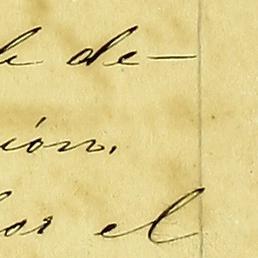 de-
ión.
por el